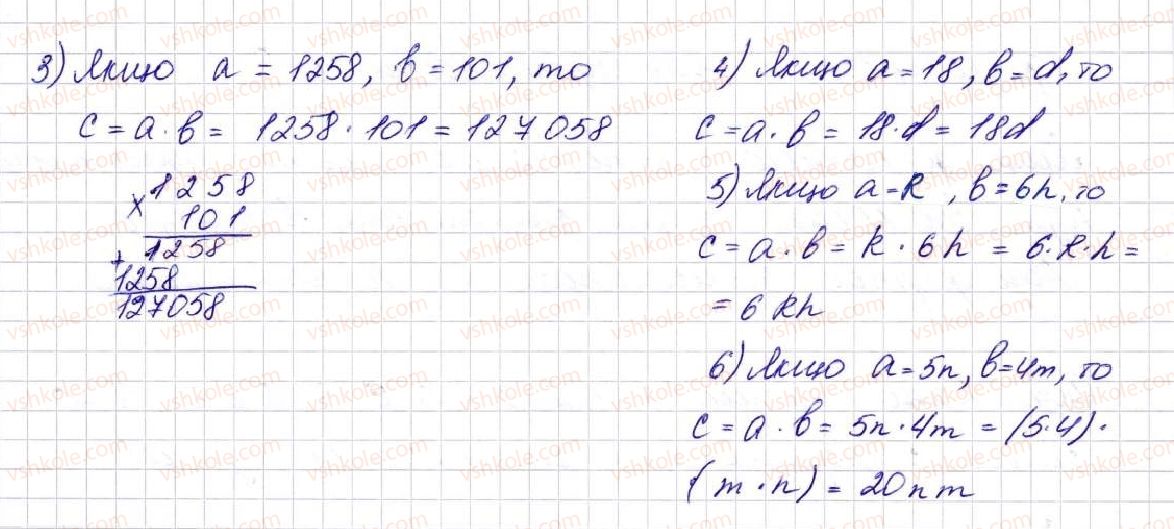 3) Якщо a = 1258, b = 101, то
c = a · b = 1258 · 101 = 127058
× 1258
101
+ 1258
1258
127058
4) Якщо a = 18, b = d, то
c = a · b = 18 · d = 18d
5) Якщо a = k, b = 6h, то
c = a · b = k · 6h = 6 · k · h =
= 6kh
6) Якщо a = 5n, b = 4m, то
c = a · b = 5n · 4m = (5 · 4) ·
(m · n) = 20nm